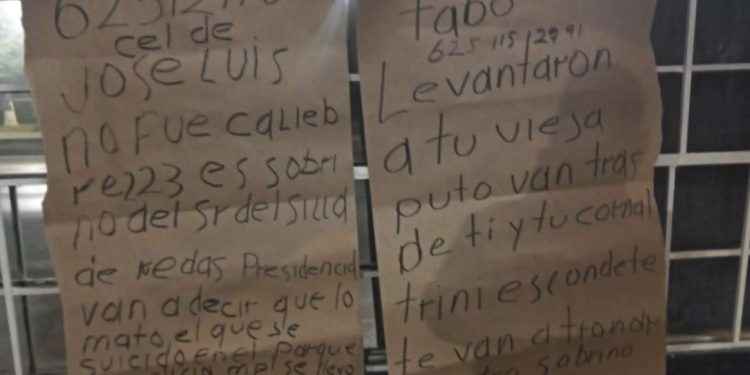 cel de
JOSE LUIS
no FUE CALLEB
re223 es sobri
no del Sr del Silla
de redas Presidencia
van a decir que lo
mato, el que se
suicido en el Parque
se llevo
tabo
625 115 12991
Levantaron
a tu vieja
puto van tras
de ti y tu carnal
trini escondete
te van a tronar
sobrino